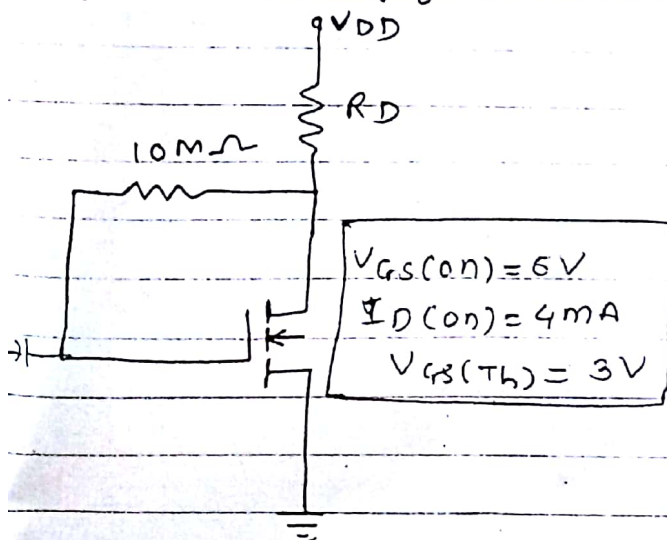 VDD
RD
10MΩ
VGS(on) = 6V
ID(on) = 4mA
VGS(Th) = 3V